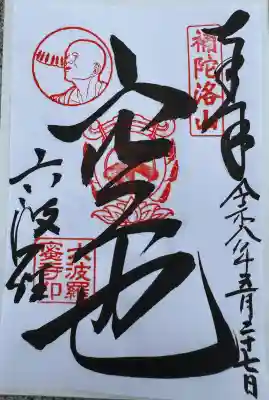 奉拝
補陀洛山
令和八年五月二十七日
空也
六波羅
六波羅
蜜寺印